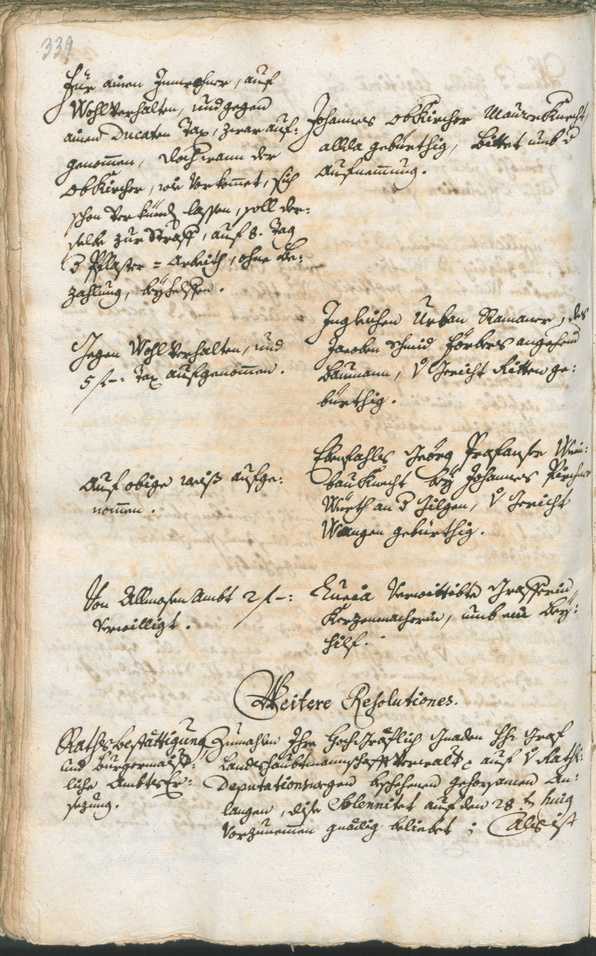 339
Für einen Inwohner, auf
Wohlverhalten, und gegen
einen Ducaten Tax, zwar auf-
genommen, doch wann der
obkircher, wie vorkommet, sich
schon verkünden lassen, soll der-
selbe zur Straff, auf 8. Tag
Pflaster = Arbeith, ohne Be-
zahlung, beyhelffen.
Johannes obkircher Maurer Knecht,
allda gebürthig, bittet umb d
Aufnemmung.
Gegen Wohlverhalten, und
5 f –: Tax aufgenommen.
Ingleichen Urban Ramaner, des
Jacoben Schmid Förbers angehend
Baumann, Gericht Ritten ge-
bürthig.
Auf obige weiß aufge-
nommen.
Ebenfahls Georg Profanter Wein-
bau Knecht bey Johannes Pircher
Würth an d Gilgen, Gericht
Wangen gebürthig.
Von Allmosen Ambt 2 f –:
verwilligt.
Lucia verwittibte Grasserin
Kerzenmacherin, umb ein Bey-
hilf.
Weitere Resolutiones.
Rathsbestättigung
und Burgermaist-
liche Ambts Er-
sezung.
Zumahlen Ihro Hochgräflich Gnaden Hh: Graf
Landshaubtmannschafft Verwalt: auf Raths-
Deputations wegen beschehenen gehorsamen An-
langen, dise Solennitet auf den 28.t huig
vorzunemmen gnädig beliebet; Als ist